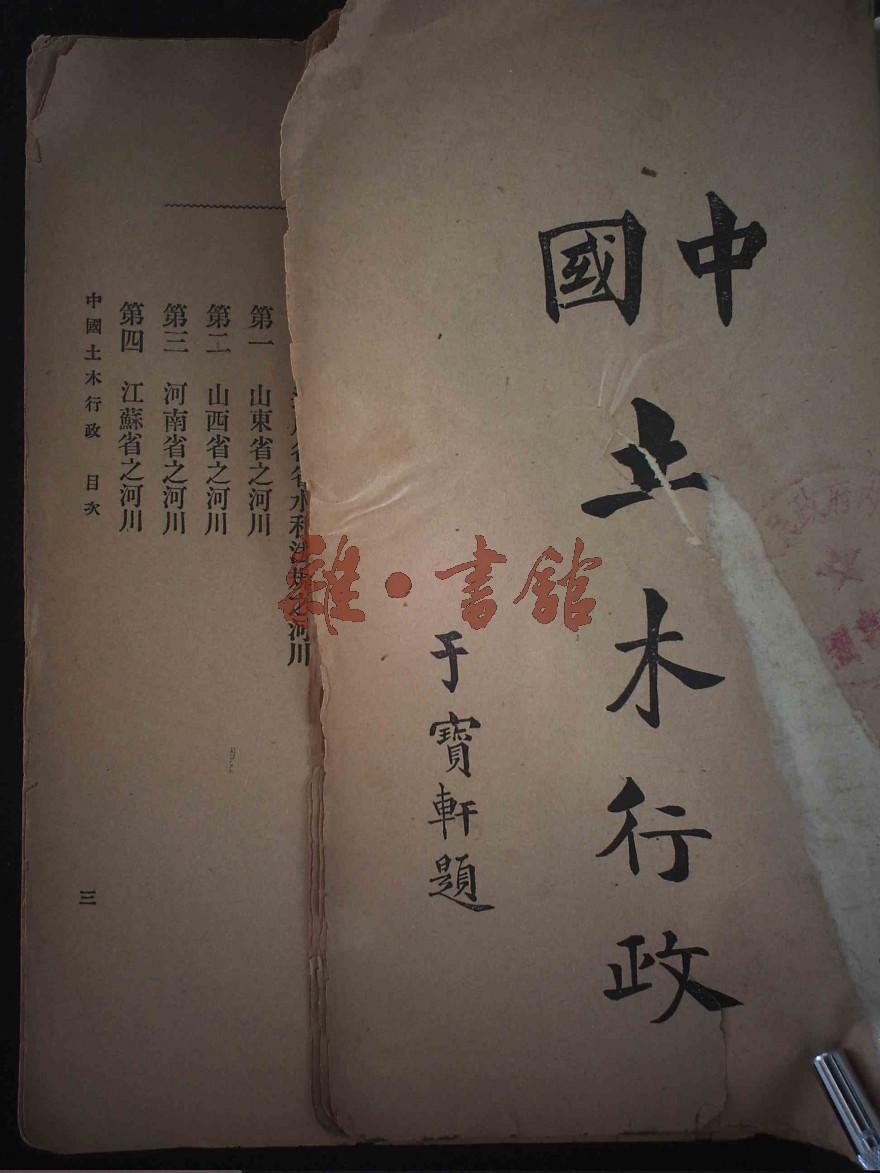 中國
土木行政
于寶軒題
雜·書館
之河川
第一 山東省之河川
第二 山西省之河川
第三 河南省之河川
第四 江蘇省之河川
中國土木行政 目次
三